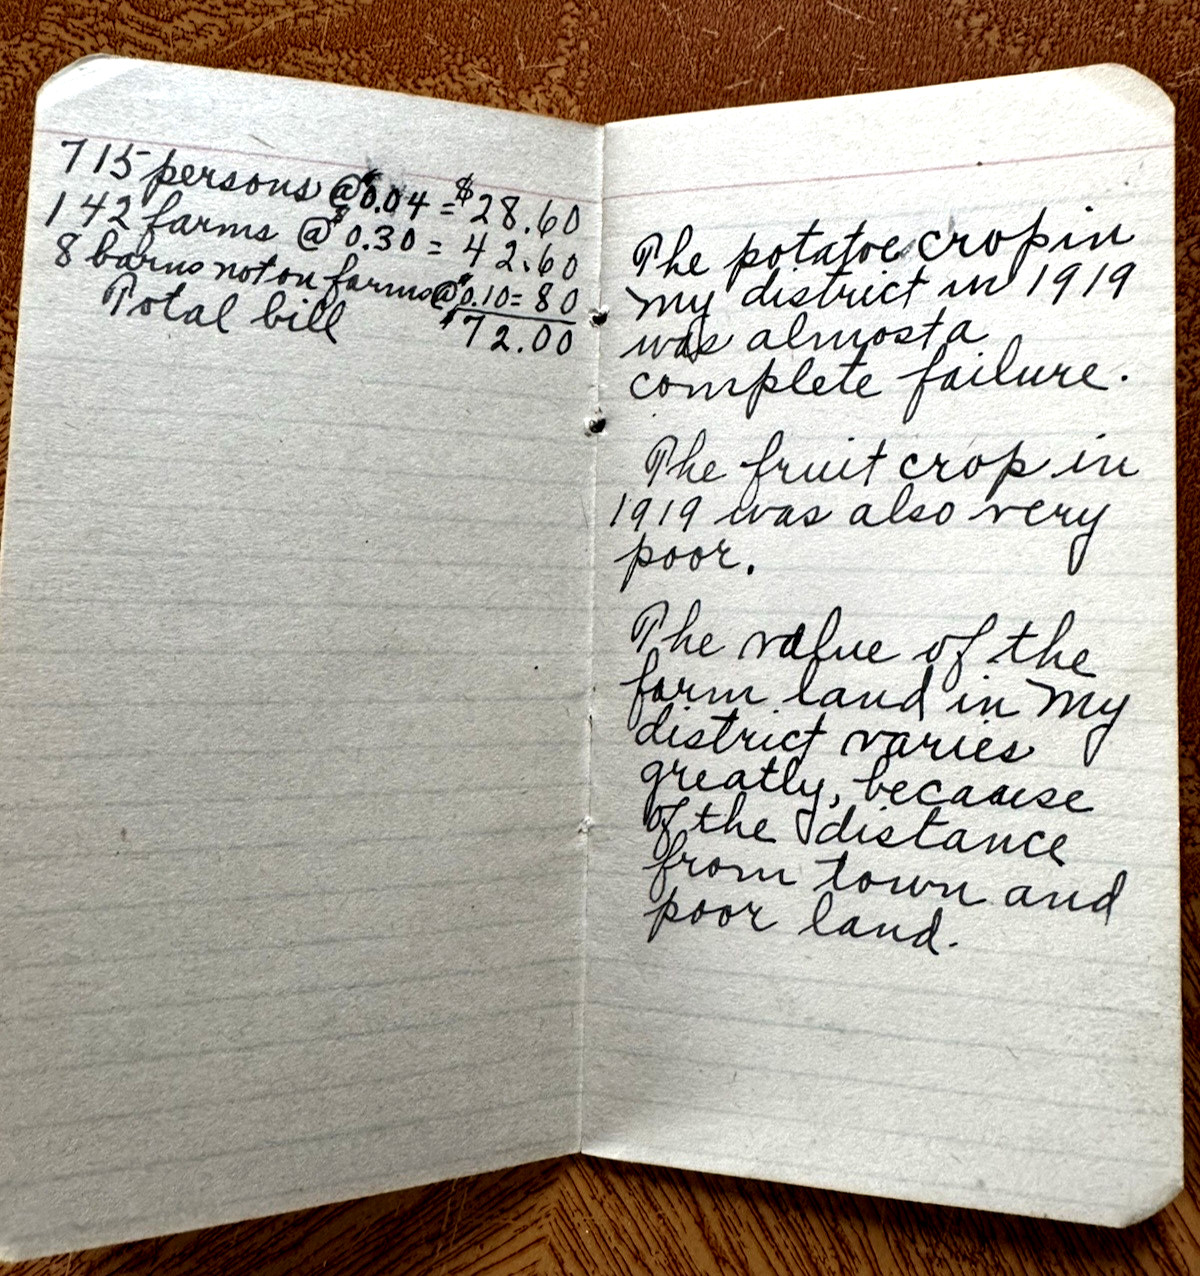 715 persons @ $0.04 = $28.60
142 farms @ $0.30 = 42.60
8 barns not on farms @ $0.10 = 80
Total bill $72.00
The potatoe crop in
my district in 1919
was almost a
complete failure.
The fruit crop in
1919 was also very
poor.
The value of the
farm land in my
district varies
greatly, because
of the distance
from town and
poor land.